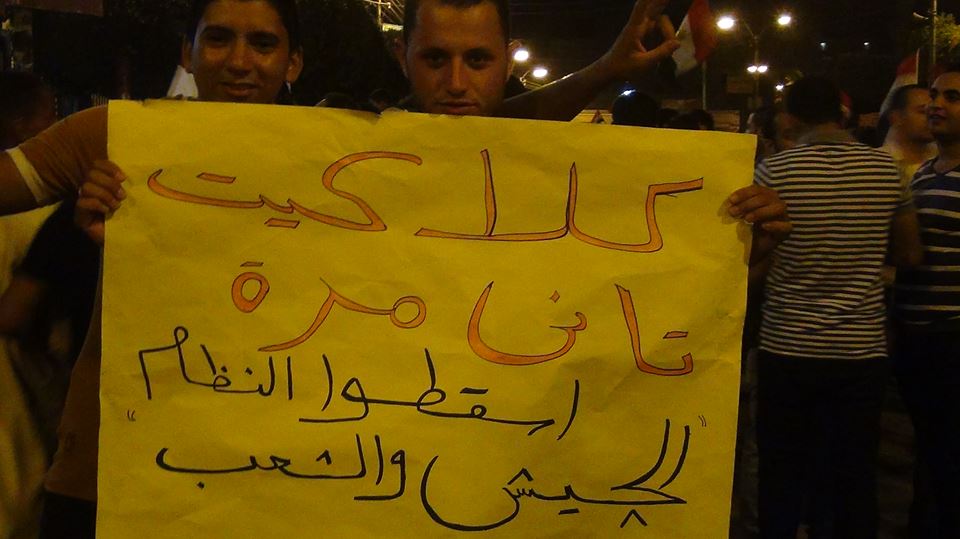 كلاكيت
تانى مرة
اسقطوا النظام
" الجيش والشعب "